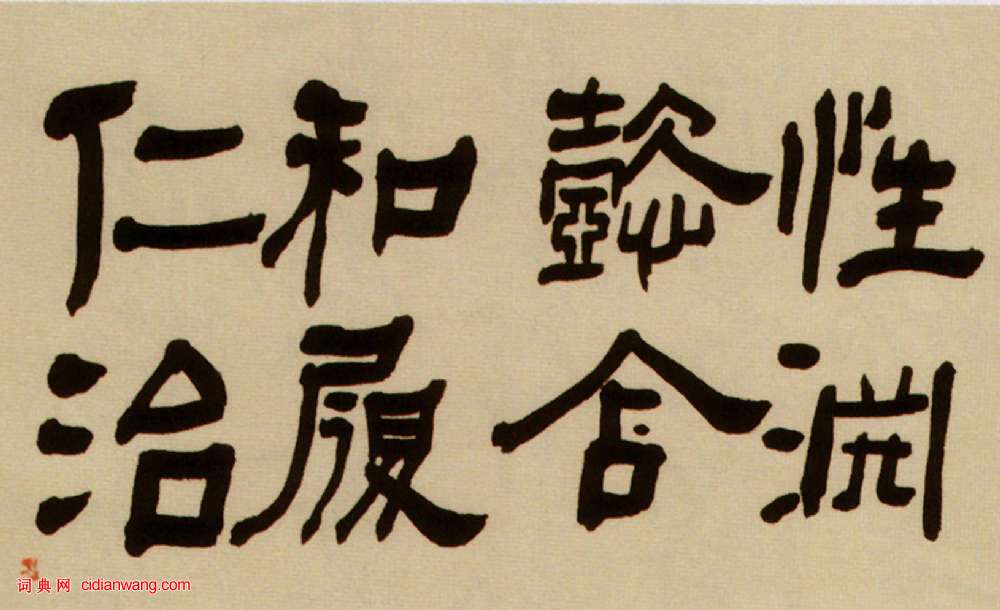 性淵
懿含
和履
仁治
词典网 cidianwang.com